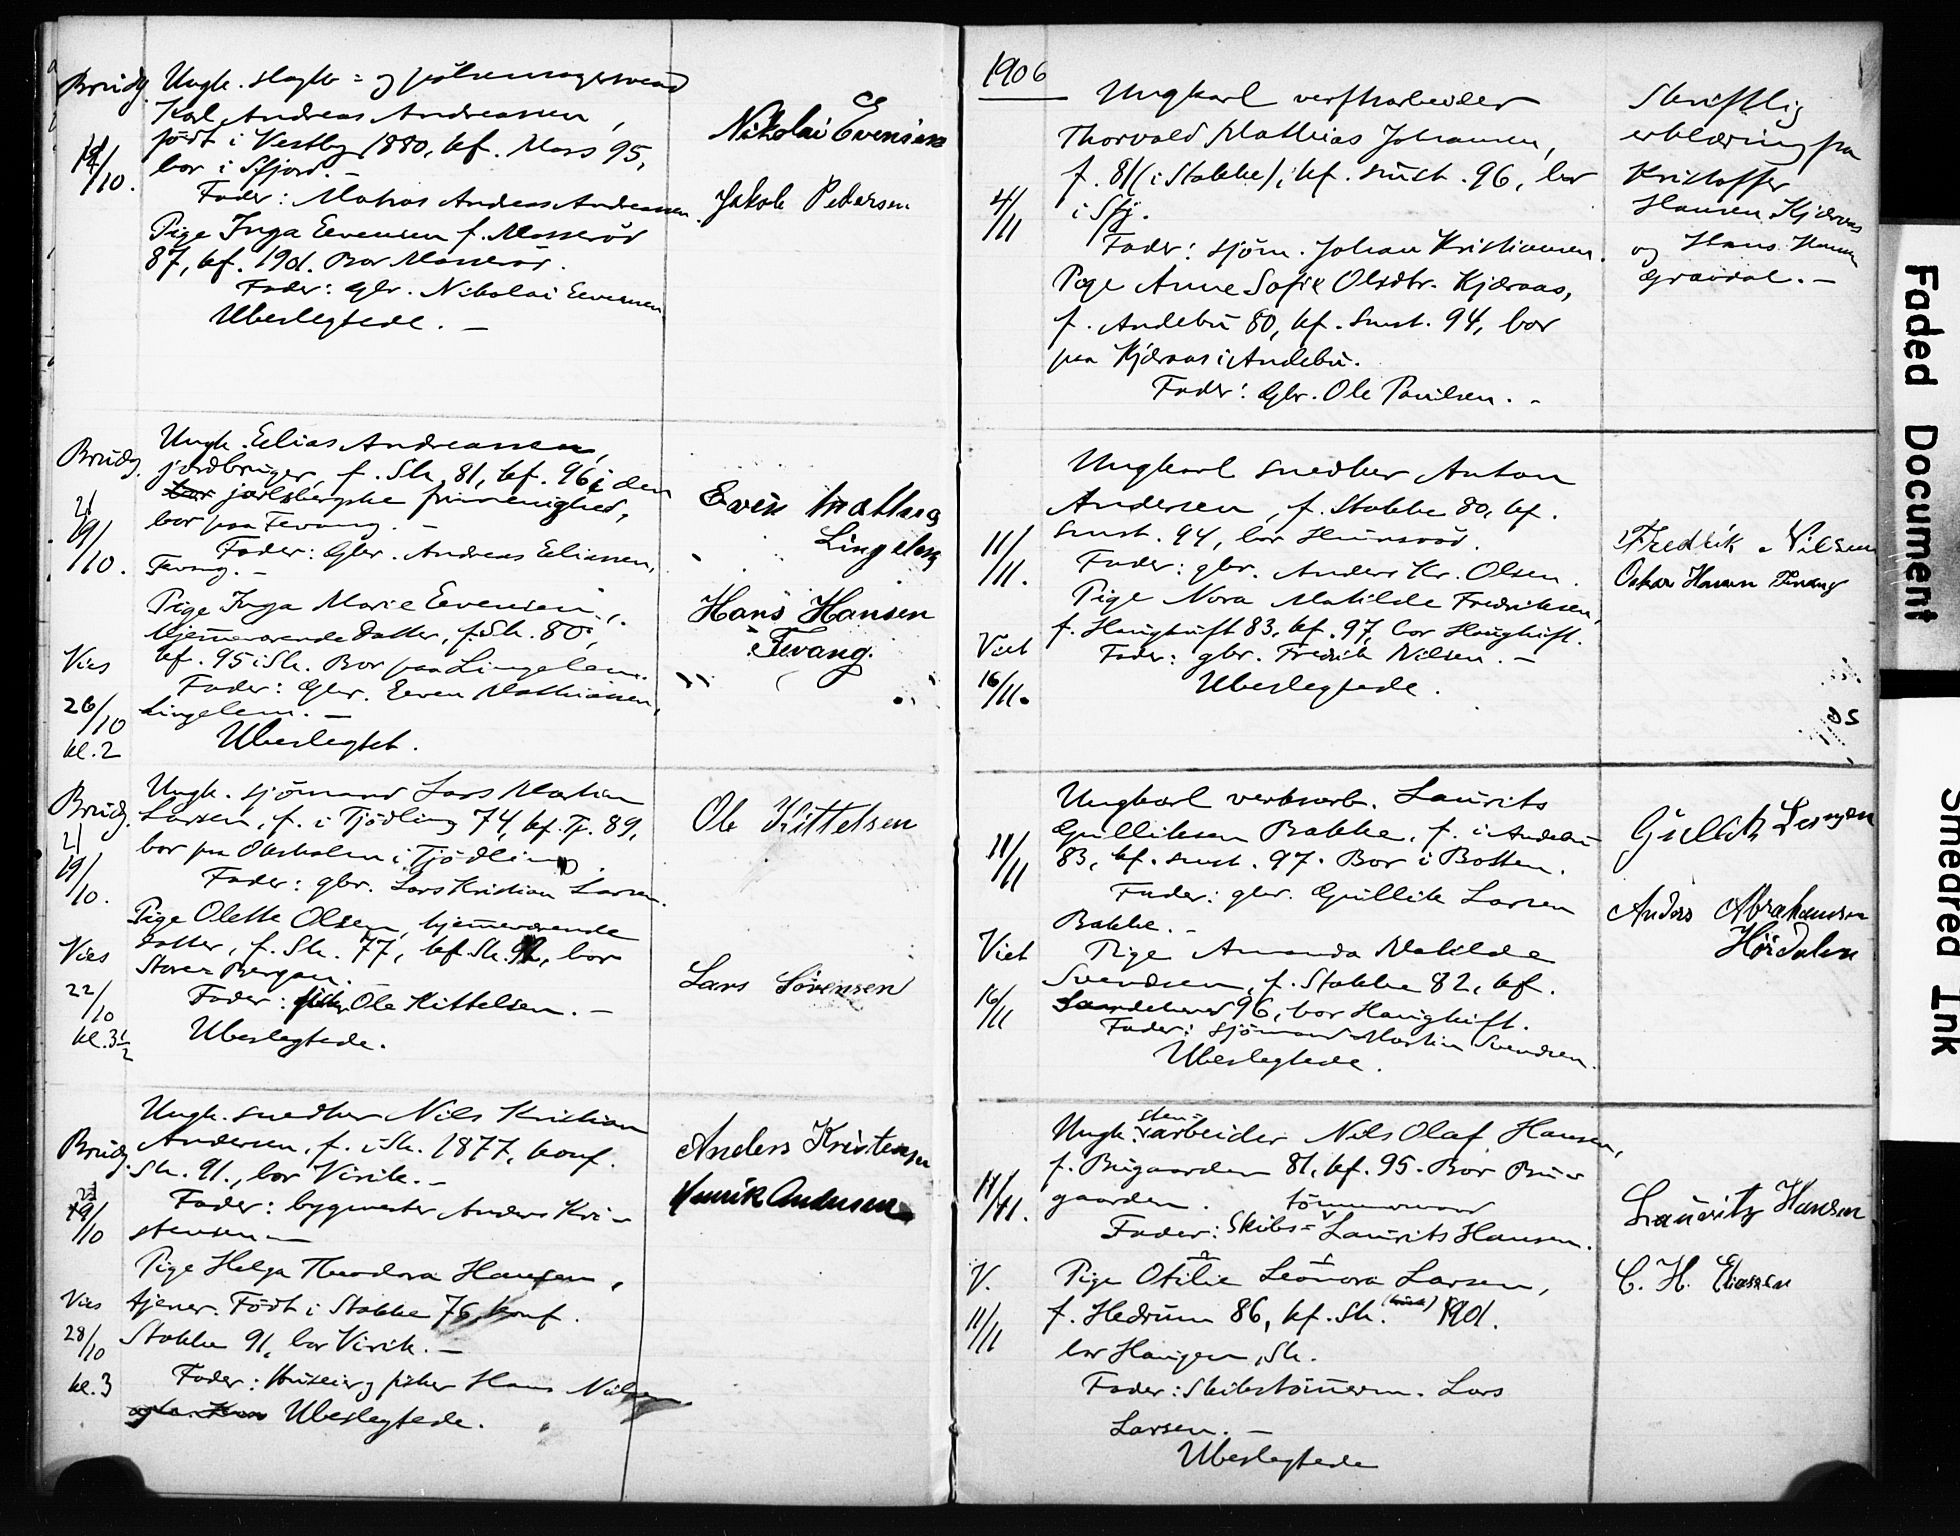 Brudg.
14/10.
Ungk. slagter- og pölsemagersvend
Karl Andreas Andreassen,
födt i Vestby 1880, kf. Moss 95,
bor i Sfjord.
Fader: Mathias Andreas Andreassen.
Pige Inga Evensen f. Mosseröd
87, kf. 1901. Bor Mosseröd.
Fader: Gbr. Nikolai Evensen
Ubeslegtede. -
Nikolai Evensen
Jakob Pedersen
Brudg.
21
19/10.
Ungk. Elias Andreassen,
jordbruger, f. Sh. 81, kf. 96 i den
jarlsbergske frimenighed,
bor paa Fevang. -
Fader: Gbr. Andreas Eliassen,
Fevang. -
Pige Inga Marie Evensen,
hjemmeværende datter, f. Sh. 80,
kf. 95 i Sh. Bor paa Lingelem.
Fader: Gbr. Even Mathiassen,
Lingelem. -
Ubeslegtet.
Vies
26/10
kl. 2
Even Mathias
Lingelem
Hans Hansen
Fevang.
Brudg.
21
19/10.
Ungk. sjömand Lars Martin
Larsen, f. i Tjödling 74, kf. Tj. 89,
bor paa Oksholm i Tjödling
Fader: gbr. Lars Kristian Larsen.
Pige Olette Olsen, hjemmeværende
datter, f. Sh. 77, kf. Sh. 92, bor
Store Bergan.
Fader: fisker Ole Kittelsen. -
Ubeslegtede.
Vies
22/10
kl. 3½
Ole Kittelsen
Lars Sörensen
Brudg.
21
19/10
Ungk. snedker Nils Kristian
Andersen, f. i Sh. 1877, konf.
Sh. 91, bor Virik. -
Fader: bygmester Anders Kri-
stensen -
Pige Helga Theodora Hansen,
tjener. Födt i Stokke 76, konf.
Stokke 91, bor Virik. -
Fader: Huseier og fisker Hans Nilsen
Ubeslegtede.
Vies
28/10
kl. 3
Anders Kristensen
Henrik Andersen
1906
4/11
Ungkarl verftsarbeider
Thorvald Mathias Johansen,
f. 81 (i Stokke), kf. smst. 96, bor
i Sfj.
Fader: sjöm. Johan Kristiansen.
Pige Anne Sofie Olsdtr. Kjæraas,
f. Andebu 80, kf. smst. 94, bor
paa Kjæraas i Andebu.
Fader: Gbr. Ole Paulsen. -
Skriftlig
erklæring fra
Kristoffer
Hansen Kjæraas
og Hans Hansen
Gravdal. -
11/11.
Ungkarl snedker Anton
Andersen, f. Stokke 80, kf.
smst. 94, bor Hunsröd.
Fader: gbr. Anders Kr. Olsen.
Pige Nora Matilde Fredriksen,
f. Haughuft 83, kf. 97, bor Haughuft.
Fader: gbr. Fredrik Nilsen. -
Ubeslegtede.
Viet
16/11.
Fredrik Nilsen
Oskar Hansen Fevang
11/11
Ungkarl verksarb. Laurits
Gulliksen Bakke, f. i Andebu
83, kf. smst. 97. Bor i Botten.
Fader: gbr. Gullik Larsen
Bakke. -
Pige Amanda Matilde
Svendsen, f. Stokke 82, kf.
Sandeherred 96, bor Haughuft.
Fader: sjömand Martin Svendsen.
Ubeslegtede.
Viet
16/11
Gullik Larsen
Anders Abrahamsen
Hördalen
11/11.
sten-
Ungk. arbeider Nils Olaf Hansen,
f. Bugaarden 81, kf. 95. Bor Bu-
gaarden.
tömmermand
Fader: Skibs- Laurits Hansen.
Pige Otilie Leonora Larsen,
f. Hedrum 86, kf. Sh. 1901.
bor Haugen, Sh.
Fader: Skibstömmerm. Lars
Larsen. -
Ubeslegtede
V.
11/11
Lauritz Hansen
C. H. Eliassen
Faded Document
Smeared Ink